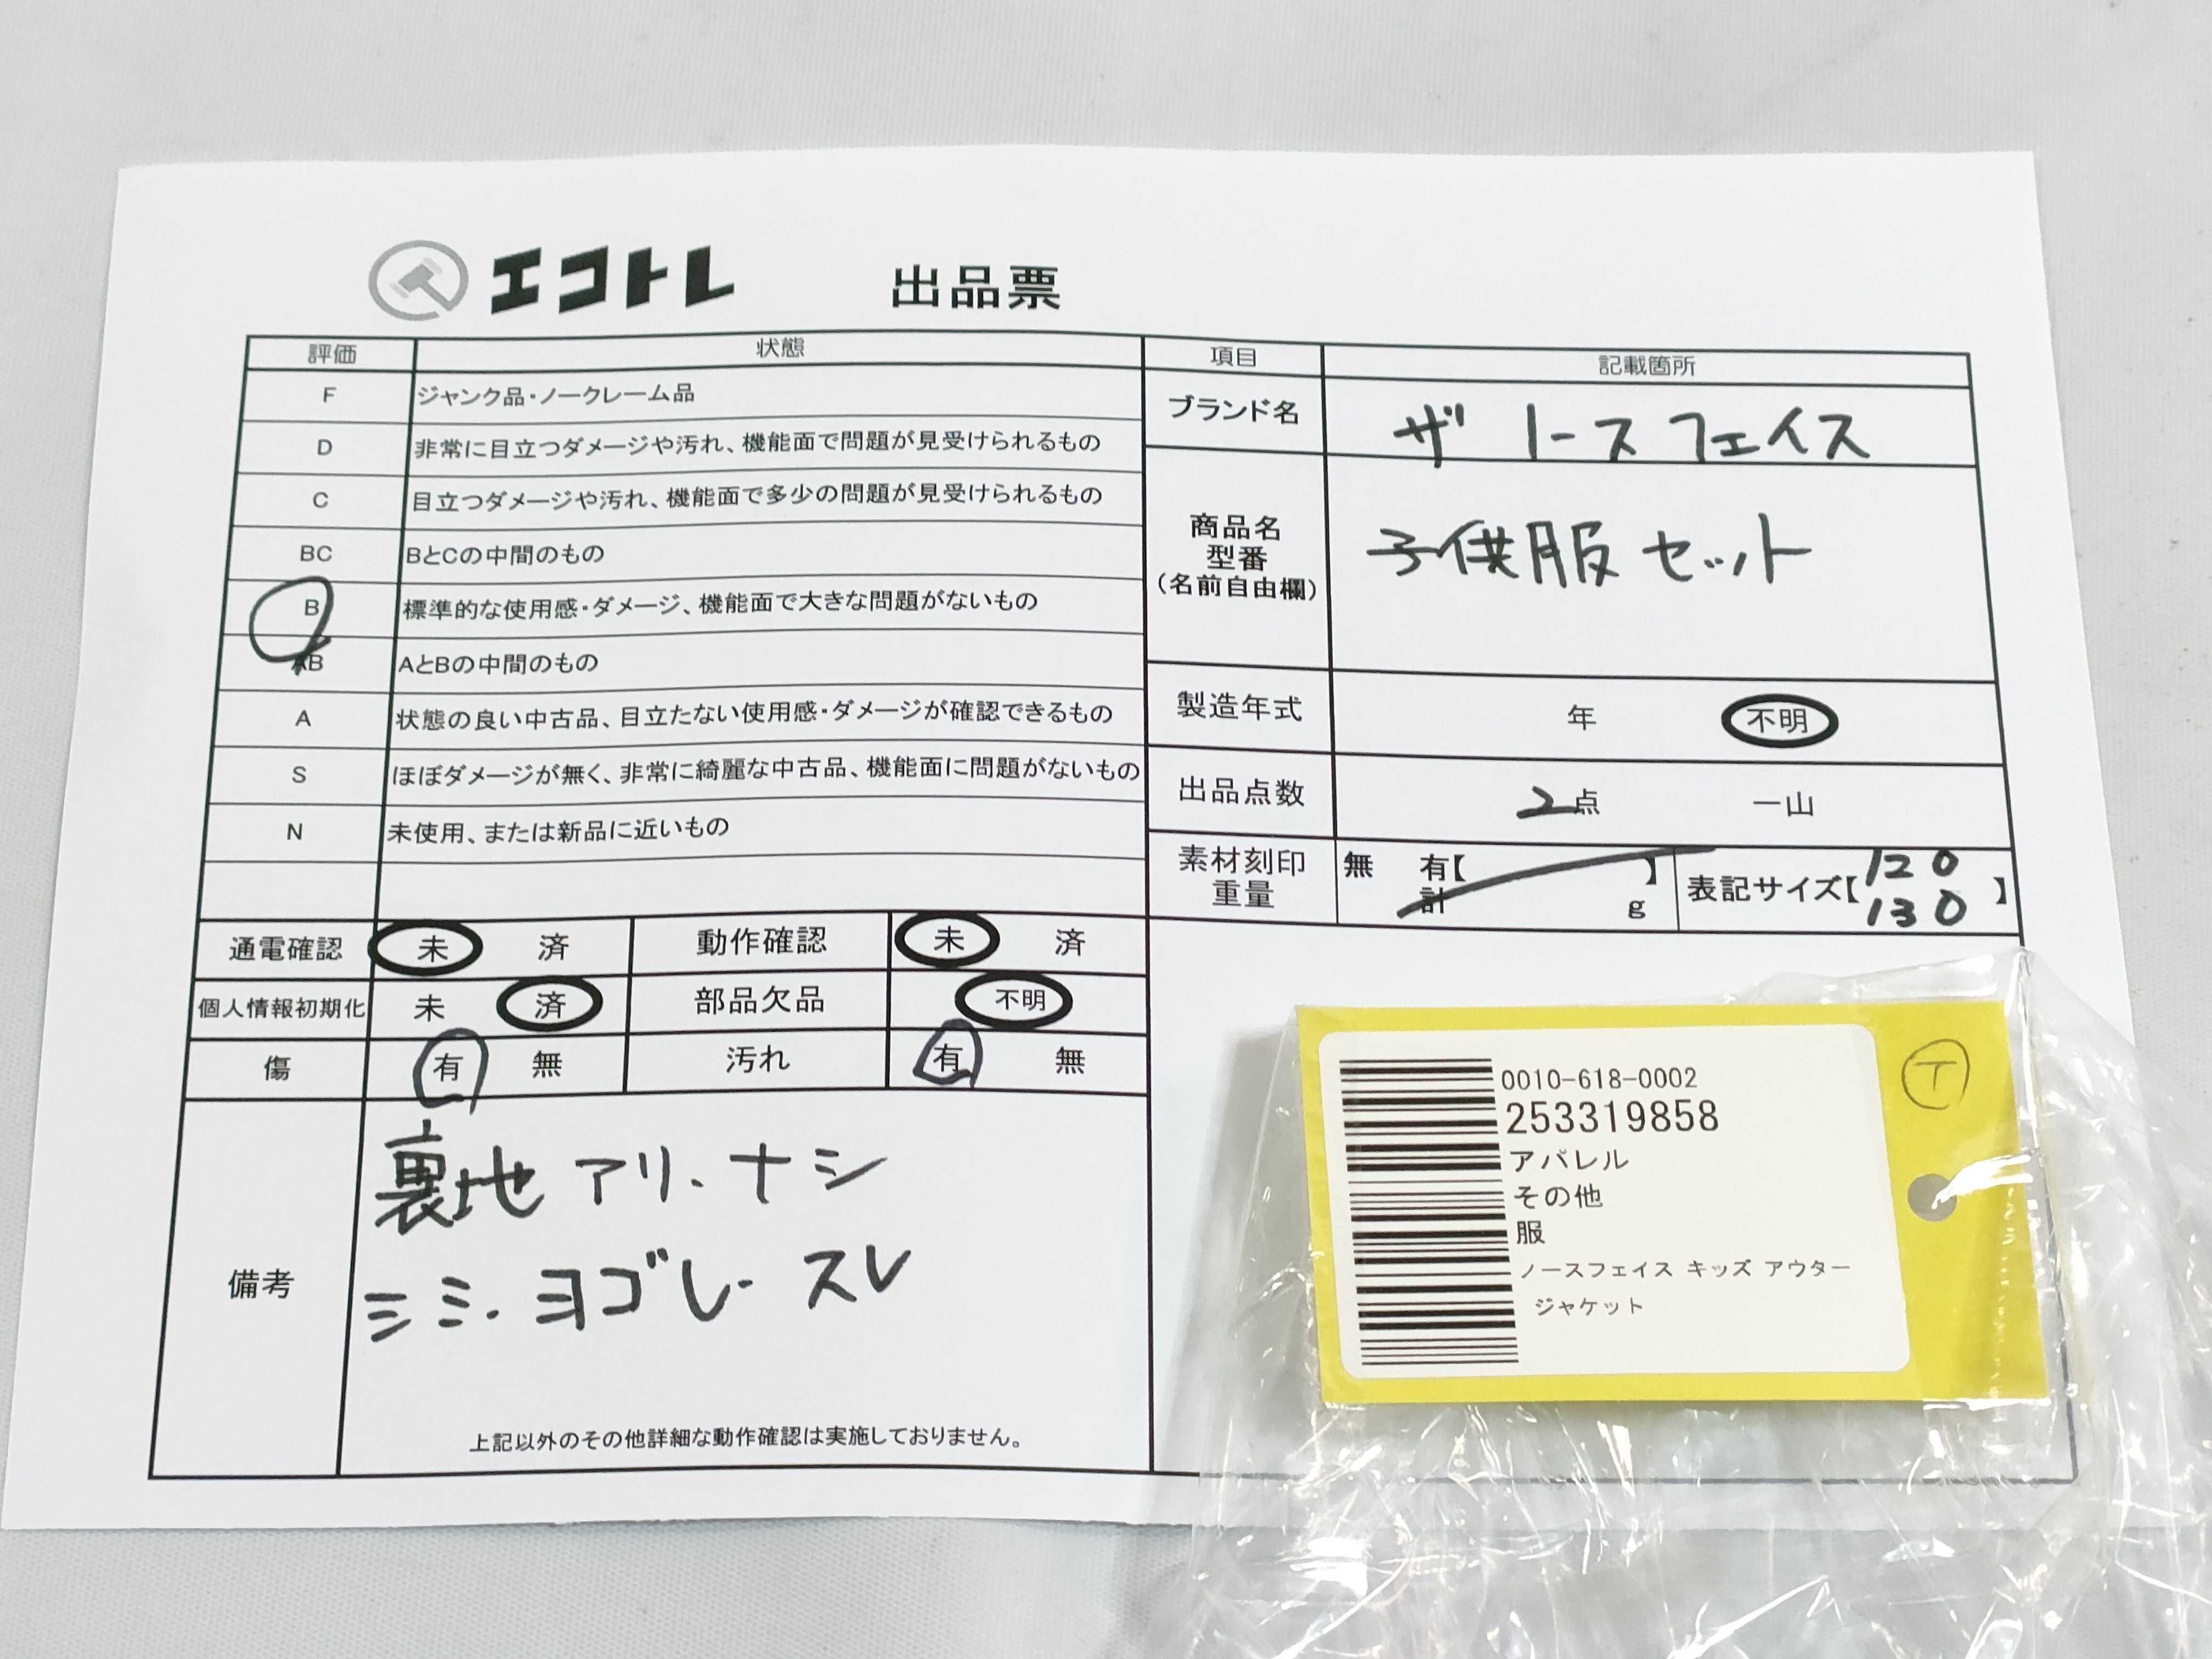 エコトレ 出品票
評価 状態
F ジャンク品・ノークレーム品
D 非常に目立つダメージや汚れ、機能面で問題が見受けられるもの
C 目立つダメージや汚れ、機能面で多少の問題が見受けられるもの
BC BとCの中間のもの
B 標準的な使用感・ダメージ、機能面で大きな問題がないもの
AB AとBの中間のもの
A 状態の良い中古品、目立たない使用感・ダメージが確認できるもの
S ほぼダメージが無く、非常に綺麗な中古品、機能面に問題がないもの
N 未使用、または新品に近いもの
通電確認 未 済 動作確認 未 済
個人情報初期化 未 済 部品欠品 不明
傷 有 無 汚れ 有 無
備考
裏地 アリ、ナシ
シミ、ヨゴレ、スレ
上記以外のその他詳細な動作確認は実施しておりません。
項目 記載箇所
ブランド名 ザ ノースフェイス
商品名
型番
(名前自由欄)
子供服セット
製造年式 年 不明
出品点数 2点 一山
素材刻印
重量
無 有【 】
計 g
表記サイズ【120
130】
0010-618-0002
253319858
アパレル
その他
服
ノースフェイス キッズ アウター
ジャケット
T